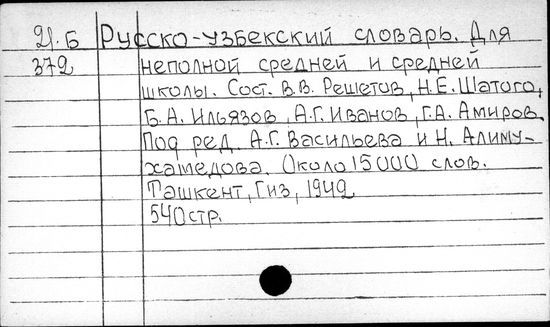 21. Б Русско-узбекский словарь. Для
372 неполной средней и средней
школы. Сост. В.В. Решетов, Н.Е. Шатого,
Б.А. Ильязов, А.Г. Иванов, Г.А. Амиров.
Под ред. А.Г. Васильева и Н. Алиму-
хамедова. Около 15000 слов.
Ташкент, Гиз, 1942
540 стр.